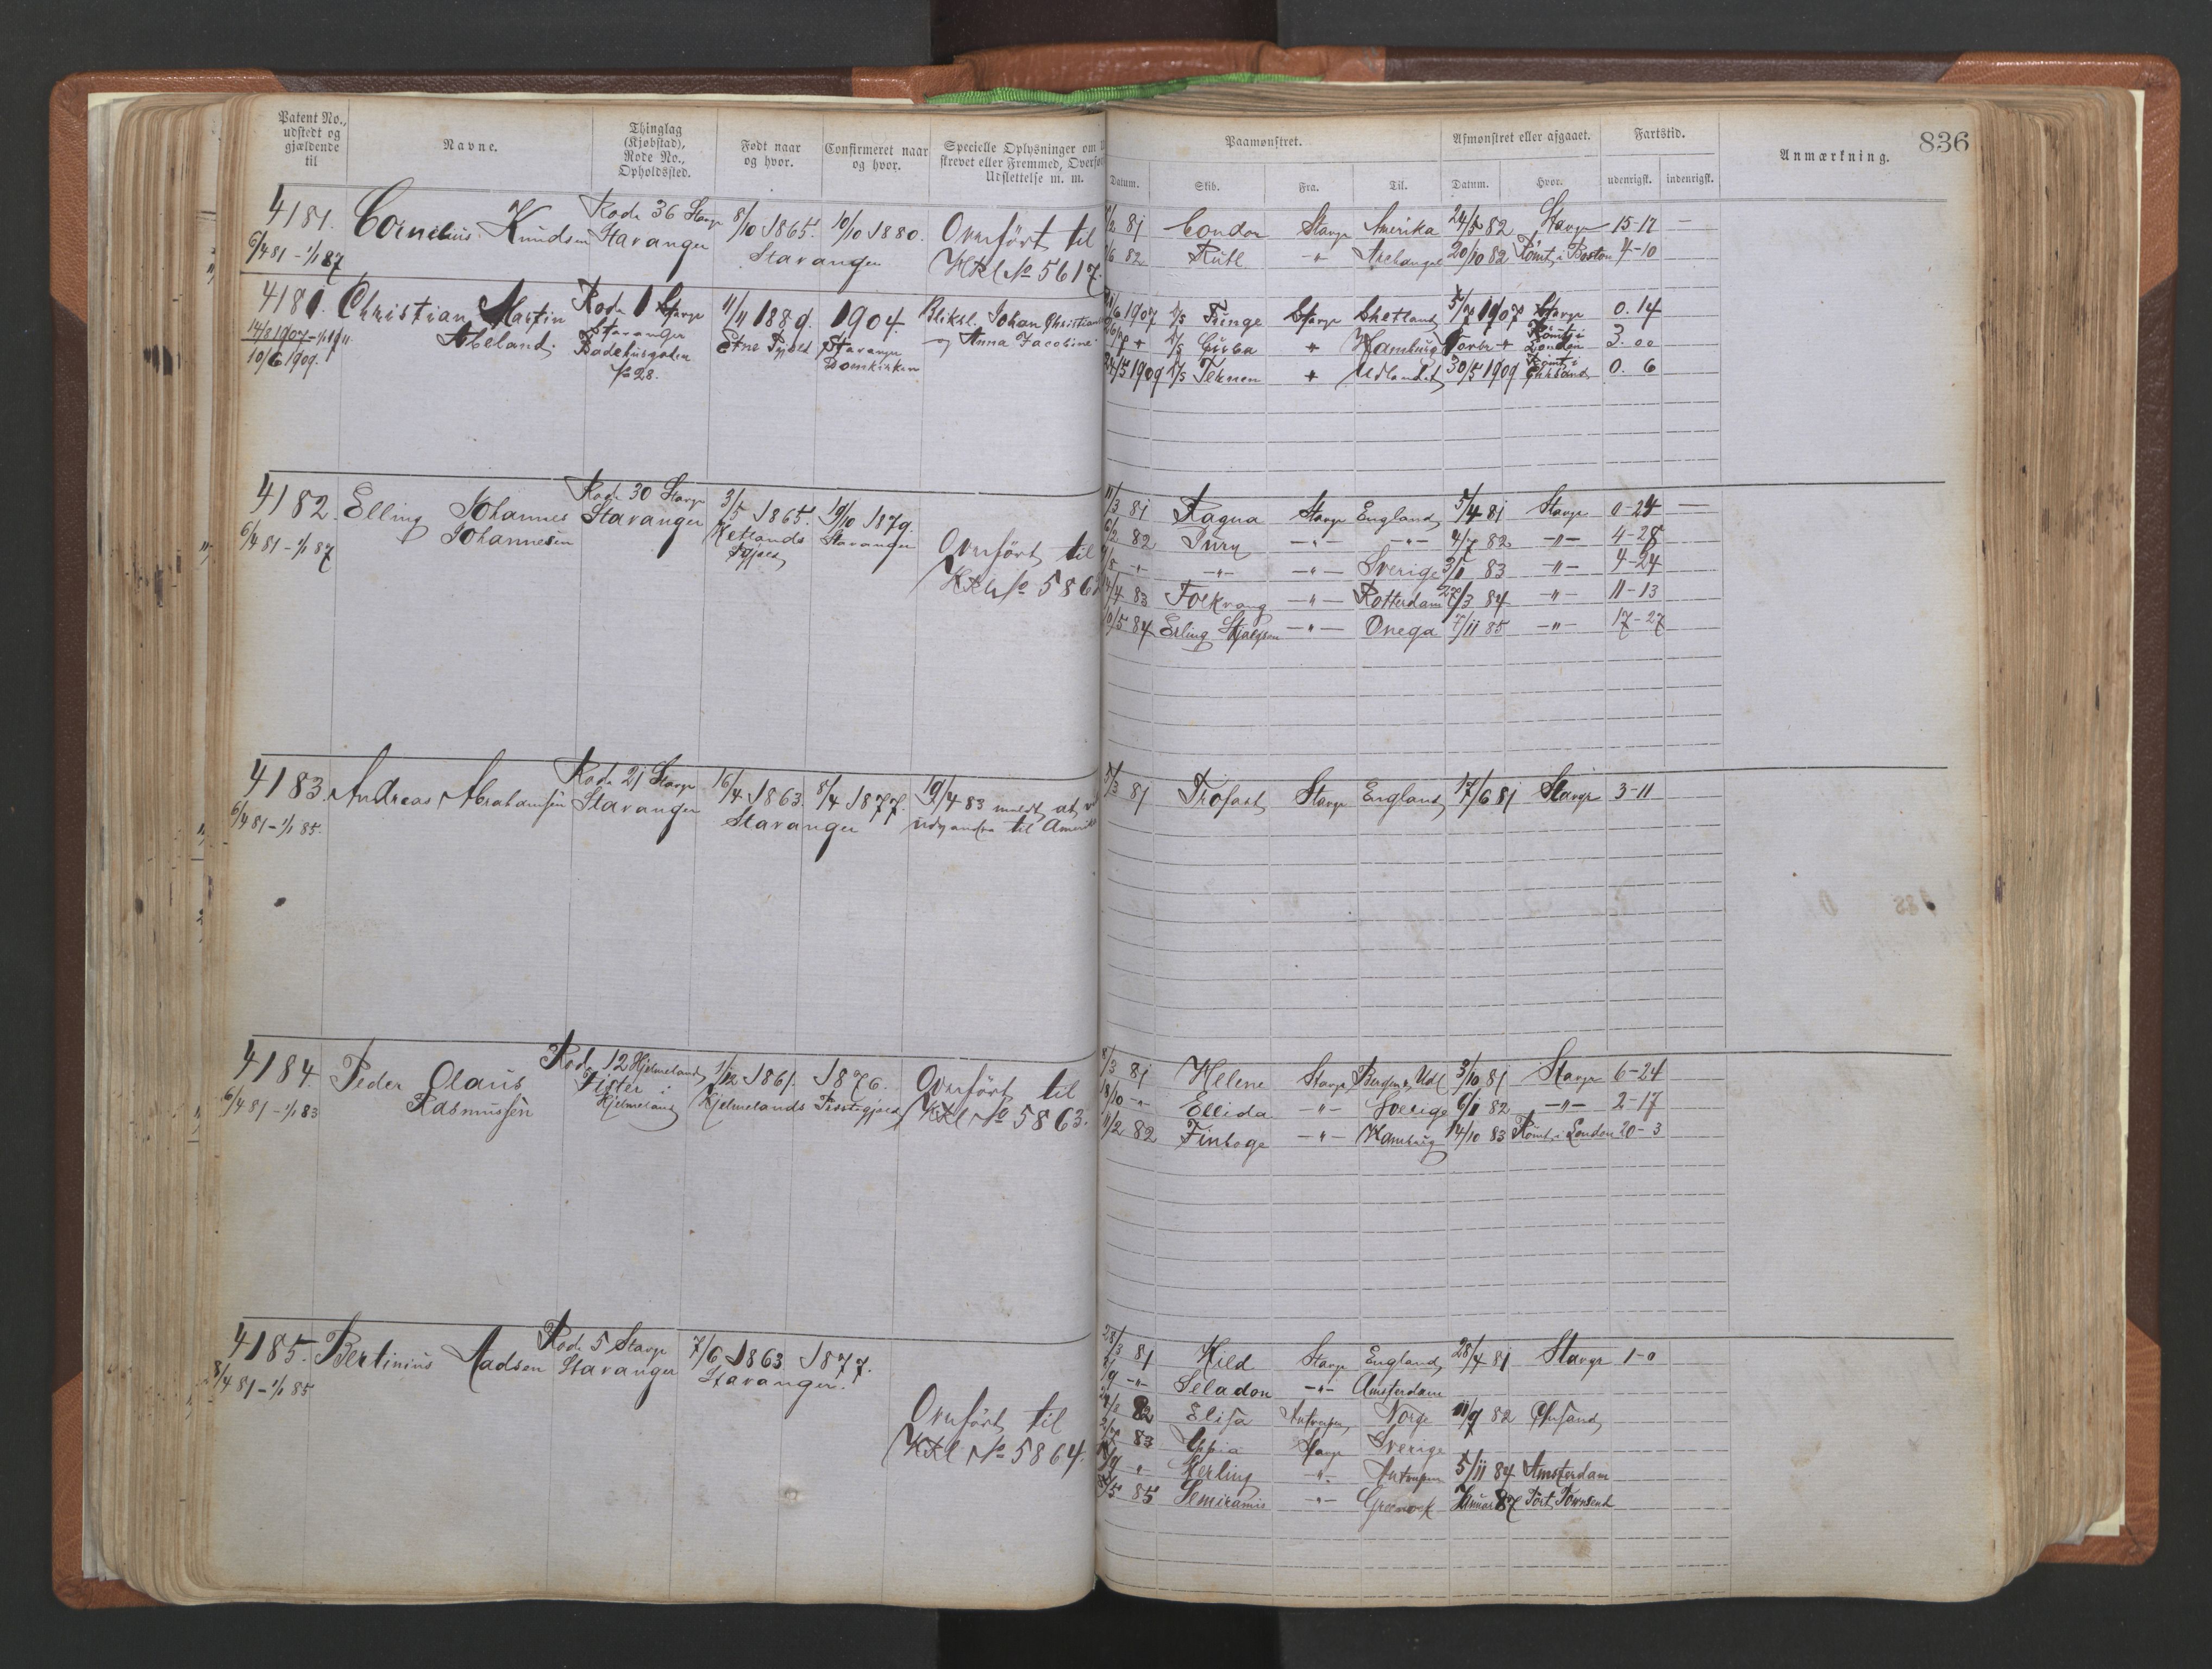 836
Patent No., udstedt og gjældende til | Navne. | Thinglag (Kjøbstad), Rode No., Opholdssted. | Født naar og hvor. | Confirmeret naar og hvor. | Specielle Oplysninger om skrevet eller Fremmed, Overfør Udslettelse m. m.
Paamønstret. | Afmønstret eller afgaaet. | Fartstid. | Anmærkning.
Datum. | Skib. | Fra. | Til. | Datum. | Hvor. | udenrigsk. | indenrigsk.
4181. Cornelius Knudsen Rode 36 Stavgr 8/10 1865. 10/10 1880. Overført til
6/4 81 – 1/1 87 Stavanger Stavanger HKl No 5617.
81 Condor Stavgr Amerika 24/5 82 Stavgr 15-17 —
82 Ruth -"- Archangel 20/10 82 Römt i Boston 4-10
4181. Christian Martin Rode 1 Stavgr 11/11 1889. 1904 Bliksl. Johan Christian
14/8 1907 – 1/1 1911 Abeland. Stavanger Etne Stavanger og Anna Jacobine
10/6 1909. Badehusgaden Domkirken
No 28.
1907 D/S Stavgr Shetland 5/7 1907 Stavgr 0. 14
D/S " Hamburg Römt i London 3. 00
24/5 1909 D/S " Udlandet 30/5 1909 Römt i 0. 6
4182. Elling Johannes Rode 30 Stavgr 3/5 1865. 19/10 1879.
6/4 81 – 1/1 87 Johannesen Stavanger Stavanger Overført til
HKl No 586
11/3 81 Ragna Stavgr England 5/4 81 Stavgr 0-24 —
6/2 82 -"- -"- 4/7 82 -"- 4-28
-"- -"- Sverige 3/1 83 -"- 4-24
14/4 83 Folkvang -"- Rotterdam 3 84 -"- 11-13
10/5 84 Erling Skjalgson -"- Onega /11 85 -"- 17-27
4183. Andreas Abrahamsen Rode 21 Stavgr 16/4 1863. 8/4 1877. 19/4 83 meldt at
6/4 81 – 1/1 85. Stavanger Stavanger udvandre til Amerika
5/3 81 Trofast Stavgr England 17/6 81 Stavgr 3-11
4184. Peder Olaus Rode 12 Hjelmeland 1/12 1861. 1876. Overført til
6/4 81 – 1/1 83 Rasmussen Fister i Hjelmeland Hjelmelands HKl No 5863.
8/3 81 Helene Stavgr Bergen & Udl 3/10 81 Stavgr 6-24
18/10 -"- Ellida -"- Sverige 6/1 82 -"- 2-17
11/2 82 Finboge -"- Hamburg 14/10 83 Römt i London 20-3
4185. Bertinius Aadsen Rode 5 Stavgr 7/6 1863 1877.
8/4 81 – 1/1 85 Stavanger Stavanger.
Overført til
HKl No 5864.
28/3 81 Hild Stavgr England 28/4 81 Stavgr 1-0
/9 -"- Seladon -"- Amsterdam
82 Elisa Antwerpen Norge 11/9 82 Chrsand
83 Stavgr Sverige
/9 -"- Kerling -"- Antwerpen 5/11 84 Amsterdam
/5 85 Semiramis -"- Greenock Januar 87 Port Townsend